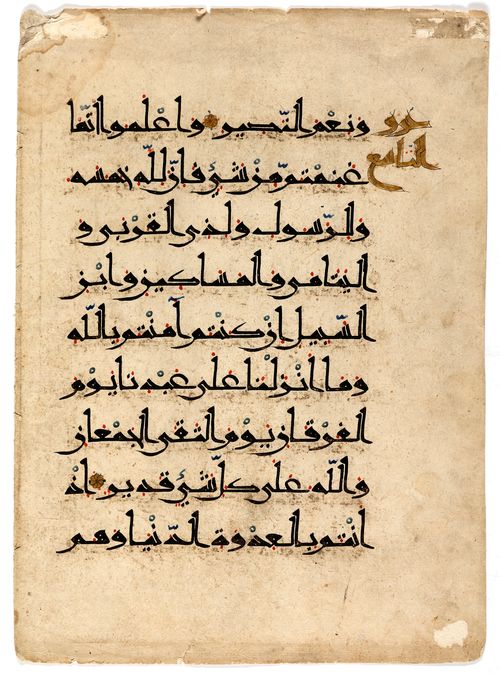 ونعم النّصير واعلموا انّما
غنمتم مّن شيء فانّ لله خمسه
وللرّسول ولذي القربى و
اليتامى والمساكين وابن
السّبيل ان كنتم آمنتم بالله
وما أنزلنا على عبدنا يوم
الفرقان يوم التقى الجمعان
والله على كلّ شيء قدير اذ
انتم بالعدوة الدّنيا وهم
جزو